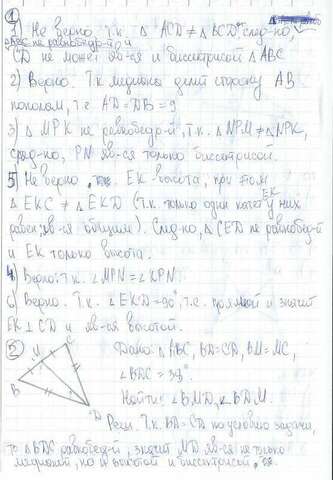 ①
1) Не верно. т.к. △ACD ≠ △BCD след-но,
△ABC не равнобедр-й и
CD не может яв-ся и биссектрисой △ABC
2) Верно. Т.к медиана делит сторону AB
пополам, т.е AD=DB=9
3) △MPK не равнобедр-й, т.к. △NPM≠△NPK,
след-но, PN яв-ся только биссектрисой.
5) Не верно, т.к. EK-высота, при этом
△EKC ≠ △EKD (т.к. только один катет EK у них
равен, яв-ся общим). След-но, △CED не равнобед-й
и EK только высота.
4) Верно: т.к. ∠MPN = ∠KPN
6) Верно. Т.к. ∠EKD=90°, т.е. прямой и значит
EK⊥CD и яв-ся высотой.
②
M C
B
D
Дано: △ABC, BD=CD, BM=MC,
∠BDC = 38°.
Найти: ∠BMD, ∠BDM.
Реш. Т.к. BD=CD по условию задачи,
то △BDC равнобед-й, значит MD яв-ся не только
медианой, но и высотой и биссектрисой,